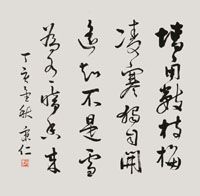 墙角数枝梅
凌寒独自开
遥知不是雪
为有暗香来
丁亥年秋 景仁